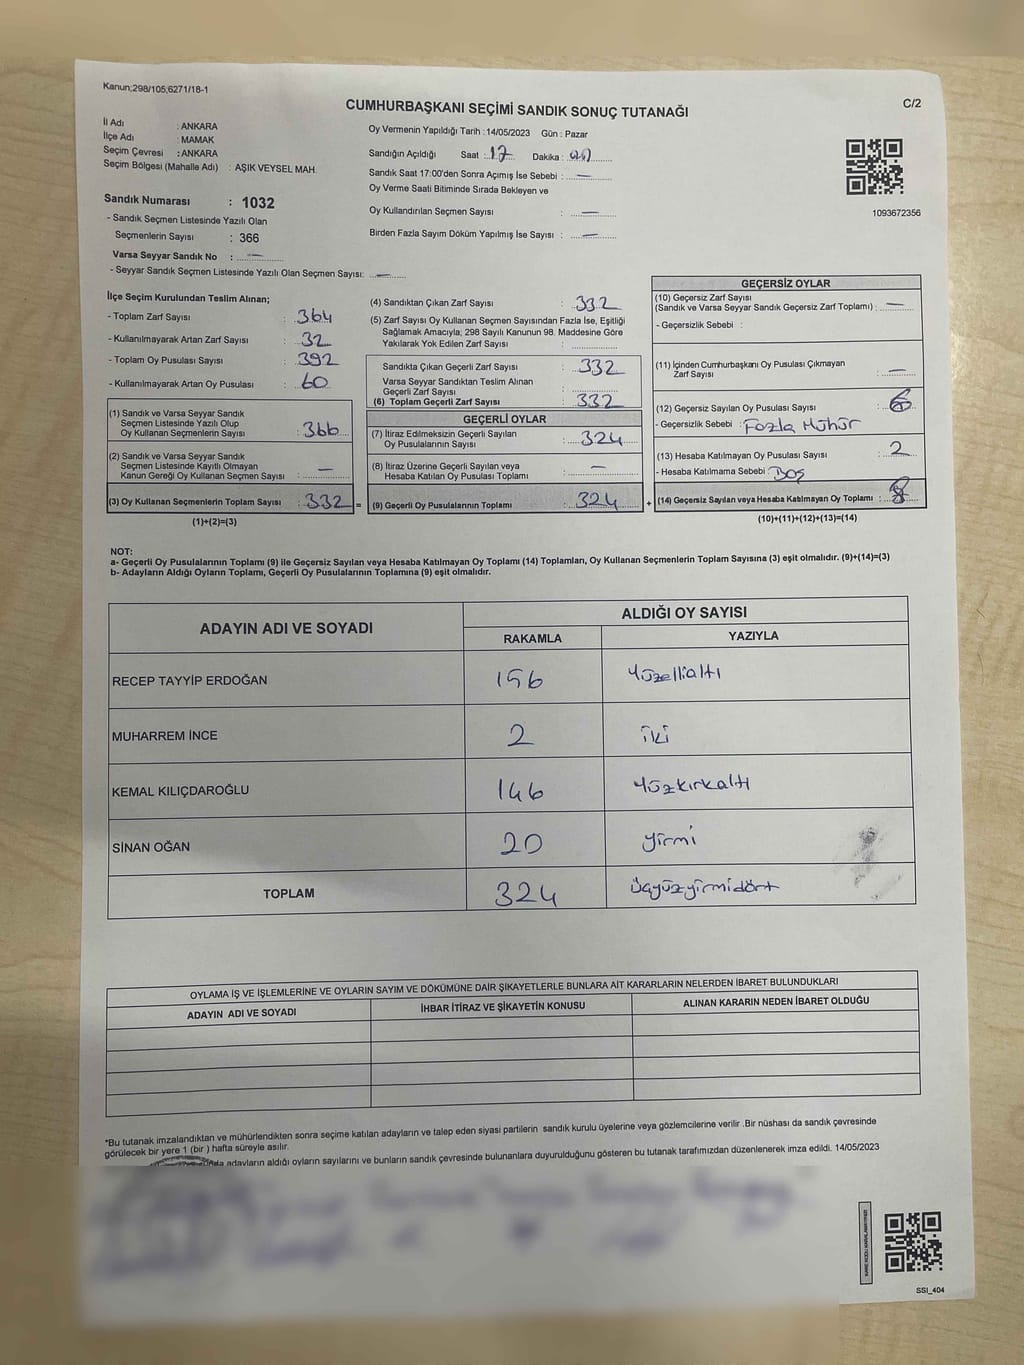 Kanun;298/105;6271/18-1
CUMHURBAŞKANI SEÇİMİ SANDIK SONUÇ TUTANAĞI
C/2
İl Adı : ANKARA
İlçe Adı : MAMAK
Seçim Çevresi : ANKARA
Seçim Bölgesi (Mahalle Adı) : AŞIK VEYSEL MAH.
Sandık Numarası : 1032
- Sandık Seçmen Listesinde Yazılı Olan
Seçmenlerin Sayısı : 366
Varsa Seyyar Sandık No : —
- Seyyar Sandık Seçmen Listesinde Yazılı Olan Seçmen Sayısı: —
Oy Vermenin Yapıldığı Tarih : 14/05/2023 Gün : Pazar
Sandığın Açıldığı Saat : 17 Dakika :
Sandık Saat 17:00'den Sonra Açımış İse Sebebi : —
Oy Verme Saati Bitiminde Sırada Bekleyen ve
Oy Kullandırılan Seçmen Sayısı : —
Birden Fazla Sayım Döküm Yapılmış İse Sayısı : —
1093672356
İlçe Seçim Kurulundan Teslim Alınan;
- Toplam Zarf Sayısı : 364
- Kullanılmayarak Artan Zarf Sayısı : 32
- Toplam Oy Pusulası Sayısı : 392
- Kullanılmayarak Artan Oy Pusulası : 60
(1) Sandık ve Varsa Seyyar Sandık
Seçmen Listesinde Yazılı Olup
Oy Kullanan Seçmenlerin Sayısı : 366
(2) Sandık ve Varsa Seyyar Sandık
Seçmen Listesinde Kayıtlı Olmayan
Kanun Gereği Oy Kullanan Seçmen Sayısı : —
(3) Oy Kullanan Seçmenlerin Toplam Sayısı : 332 =
(1)+(2)=(3)
(4) Sandıktan Çıkan Zarf Sayısı : 332
(5) Zarf Sayısı Oy Kullanan Seçmen Sayısından Fazla İse, Eşitliği
Sağlamak Amacıyla; 298 Sayılı Kanunun 98. Maddesine Göre
Yakılarak Yok Edilen Zarf Sayısı :
Sandıkta Çıkan Geçerli Zarf Sayısı : 332
Varsa Seyyar Sandıktan Teslim Alınan
Geçerli Zarf Sayısı :
(6) Toplam Geçerli Zarf Sayısı : 332
GEÇERLİ OYLAR
(7) İtiraz Edilmeksizin Geçerli Sayılan
Oy Pusulasının Sayısı : 324
(8) İtiraz Üzerine Geçerli Sayılan veya
Hesaba Katılan Oy Pusulası Toplamı : —
(9) Geçerli Oy Pusulalarının Toplamı : 324 +
GEÇERSİZ OYLAR
(10) Geçersiz Zarf Sayısı
(Sandık ve Varsa Seyyar Sandık Geçersiz Zarf Toplamı) : —
- Geçersizlik Sebebi :
(11) İçinden Cumhurbaşkanı Oy Pusulası Çıkmayan
Zarf Sayısı : —
(12) Geçersiz Sayılan Oy Pusulası Sayısı : 6
- Geçersizlik Sebebi : Fazla Mühür
(13) Hesaba Katılmayan Oy Pusulası Sayısı : 2
- Hesaba Katılmama Sebebi : Boş
(14) Geçersiz Sayılan veya Hesaba Katılmayan Oy Toplamı : 8
(10)+(11)+(12)+(13)=(14)
NOT:
a- Geçerli Oy Pusulalarının Toplamı (9) ile Geçersiz Sayılan veya Hesaba Katılmayan Oy Toplamı (14) Toplamları, Oy Kullanan Seçmenlerin Toplam Sayısına (3) eşit olmalıdır. (9)+(14)=(3)
b- Adayların Aldığı Oyların Toplamı, Geçerli Oy Pusulalarının Toplamına (9) eşit olmalıdır.
ADAYIN ADI VE SOYADI ALDIĞI OY SAYISI
RAKAMLA YAZIYLA
RECEP TAYYİP ERDOĞAN 156 Yüzellialtı
MUHARREM İNCE 2 iki
KEMAL KILIÇDAROĞLU 146 Yüzkırkaltı
SİNAN OĞAN 20 yirmi
TOPLAM 324 üçyüzyirmidört
OYLAMA İŞ VE İŞLEMLERİNE VE OYLARIN SAYIM VE DÖKÜMÜNE DAİR ŞİKAYETLERLE BUNLARA AİT KARARLARIN NELERDEN İBARET BULUNDUKLARI
ADAYIN ADI VE SOYADI İHBAR İTİRAZ VE ŞİKAYETİN KONUSU ALINAN KARARIN NEDEN İBARET OLDUĞU
*Bu tutanak imzalandıktan ve mühürlendikten sonra seçime katılan adayların ve talep eden siyasi partilerin sandık kurulu üyelerine veya gözlemcilerine verilir .Bir nüshası da sandık çevresinde
görülecek bir yere 1 (bir ) hafta süreyle asılır.
adayların aldığı oyların sayılarını ve bunların sandık çevresinde bulunanlara duyurulduğunu gösteren bu tutanak tarafımızdan düzenlenerek imza edildi. 14/05/2023
SSI_404